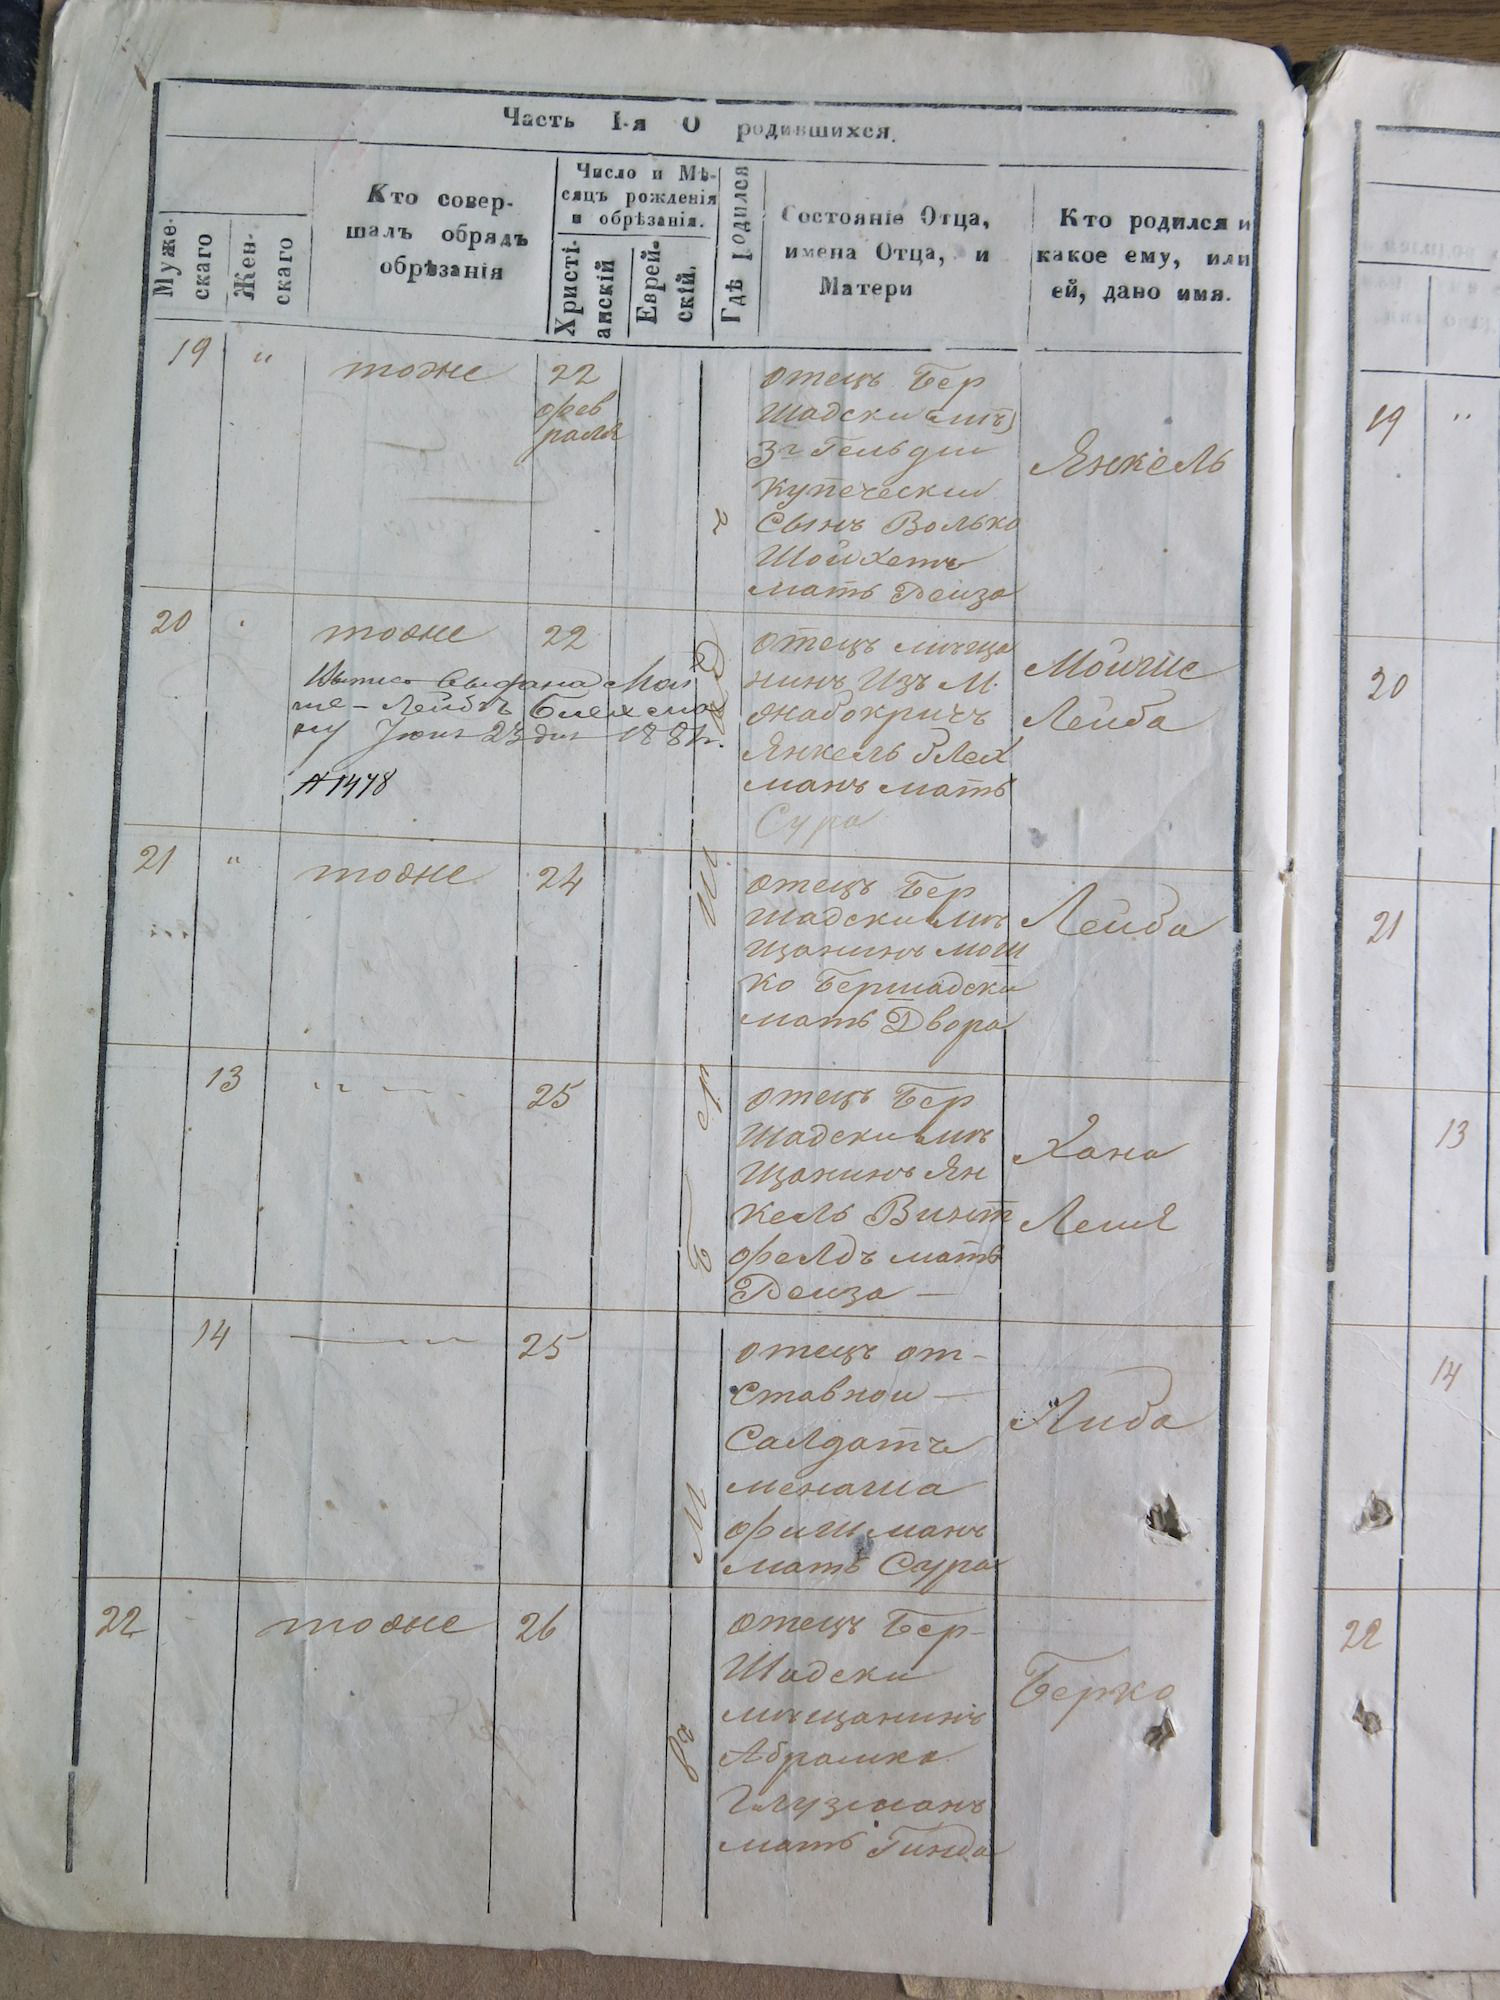 Часть I-я О родившихся.
Муже-
скаго
Жен-
скаго
Кто совер-
шалъ обрядъ
обрѣзанія
Число и Мѣ-
сяцъ рожденія
и обрѣзанія.
Христі-
анскій
Еврей-
скій.
Гдѣ родился
Состояніе Отца,
имена Отца, и
Матери
Кто родился и
какое ему, или
ей, дано имя.
19 " тоже 22
фев
раля
отецъ Бер
шадски
3й Гельдии
купечески
сынъ Волько
Шойхетъ
мать Реиза
Янкель
20 тоже 22
выдана Мой
ше-Лейбъ Блехма
ну 23 дня
№ 1478
отецъ мѣща
нинъ изъ м.
Жабокричъ
Янкель Блех
манъ мать
Сура
Мойше
Лейба
21 " тоже 24
отецъ Бер
шадски мѣ
щанинъ Мош
ко Бершадски
мать Двора
Лейба
13 " 25
отецъ Бер
шадски мѣ
щанинъ Ян
кель Винт
фелдъ мать
Реиза
Хана
Лея
14 25
отецъ от-
ставнои
салдатъ
Менаша
Фишманъ
мать Сура
Либа
22 тоже 26
отецъ Бер-
шадски
мѣщанинъ
Абрамко
Глузманъ
мать Гинда
Берко
19 "
20
21
13
14
22